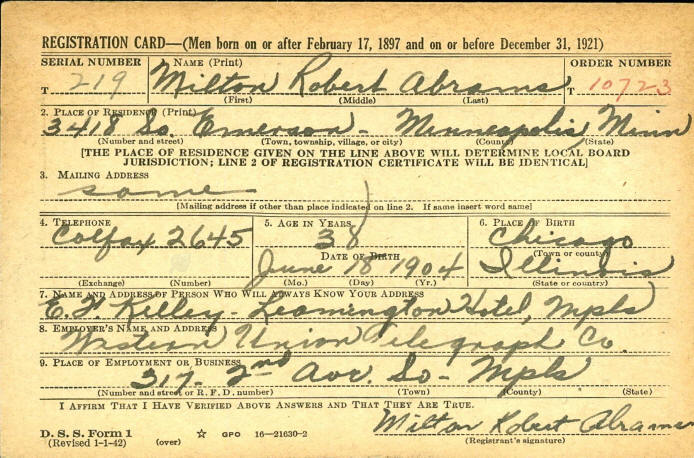 REGISTRATION CARD—(Men born on or after February 17, 1897 and on or before December 31, 1921)
SERIAL NUMBER 1. NAME (Print) ORDER NUMBER
T 219 Milton Robert Abrams T 10723
(First) (Middle) (Last)
2. PLACE OF RESIDENCE (Print)
3418 So. Emerson - Minneapolis Minn
(Number and street) (Town, township, village, or city) (County) (State)
[THE PLACE OF RESIDENCE GIVEN ON THE LINE ABOVE WILL DETERMINE LOCAL BOARD
JURISDICTION; LINE 2 OF REGISTRATION CERTIFICATE WILL BE IDENTICAL]
3. MAILING ADDRESS
same
[Mailing address if other than place indicated on line 2. If same insert word same]
4. TELEPHONE 5. AGE IN YEARS 6. PLACE OF BIRTH
Colfax 2645 38 Chicago
DATE OF BIRTH (Town or county)
June 18 1904 Illinois
(Exchange) (Number) (Mo.) (Day) (Yr.) (State or country)
7. NAME AND ADDRESS OF PERSON WHO WILL ALWAYS KNOW YOUR ADDRESS
Kelley - Leamington Hotel, Mpls
8. EMPLOYER'S NAME AND ADDRESS
Western Union Telegraph Co.
9. PLACE OF EMPLOYMENT OR BUSINESS
317- 2nd Ave. So - Mpls
(Number and street or R. F. D. number) (Town) (County) (State)
I AFFIRM THAT I HAVE VERIFIED ABOVE ANSWERS AND THAT THEY ARE TRUE.
D. S. S. Form 1
(Revised 1-1-42) (over) ☆ GPO 16—21630-2
Milton Robert Abrams
(Registrant's signature)